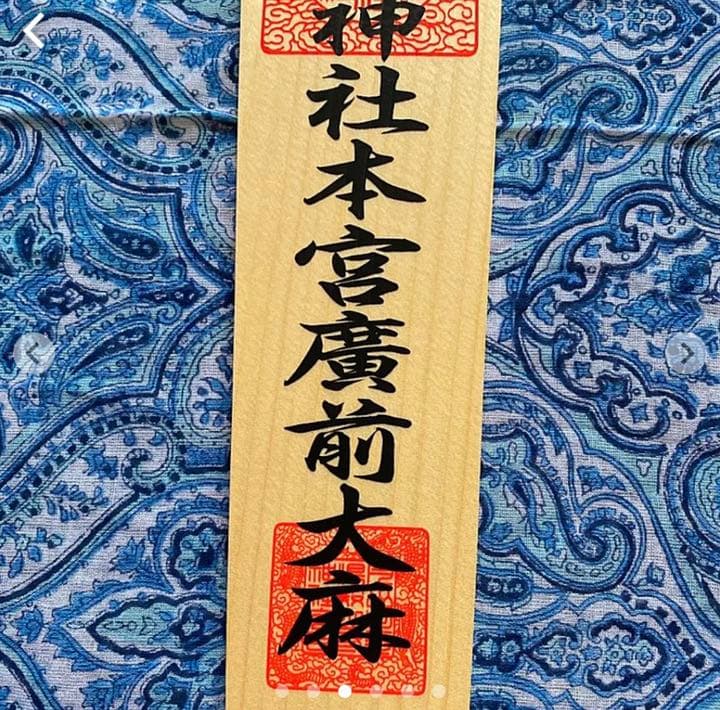 神社本宮廣前大麻